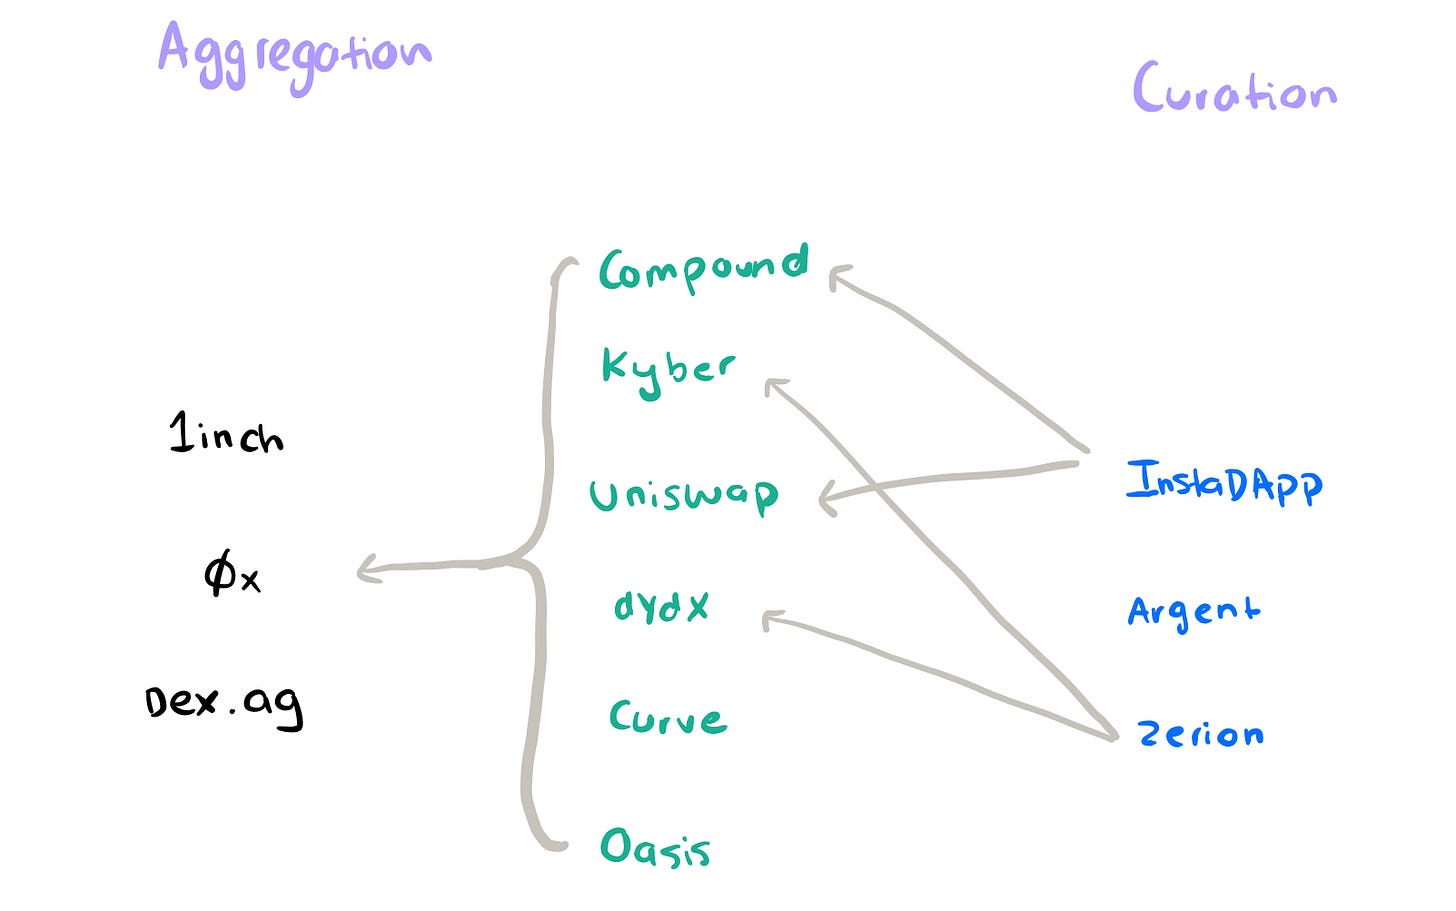 Aggregation
Curation
Compound
Kyber
1inch
Uniswap
InstaDApp
Øx
dYdX
Argent
Dex.ag
Curve
Zerion
Oasis